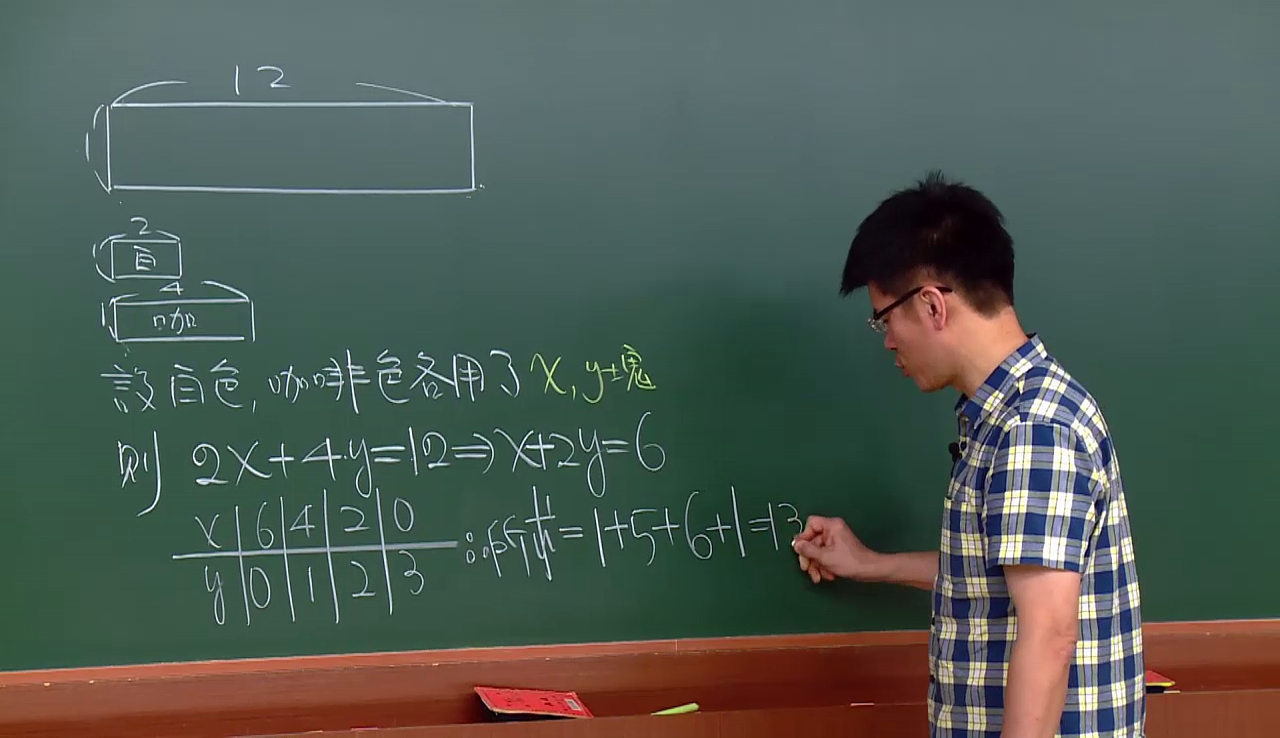 12
1
2
白
4
1
咖
設白色,咖啡色各用了x,y塊
則 2x+4y=12⇒x+2y=6
x 6 4 2 0
y 0 1 2 3
∴所求=1+5+6+1=13